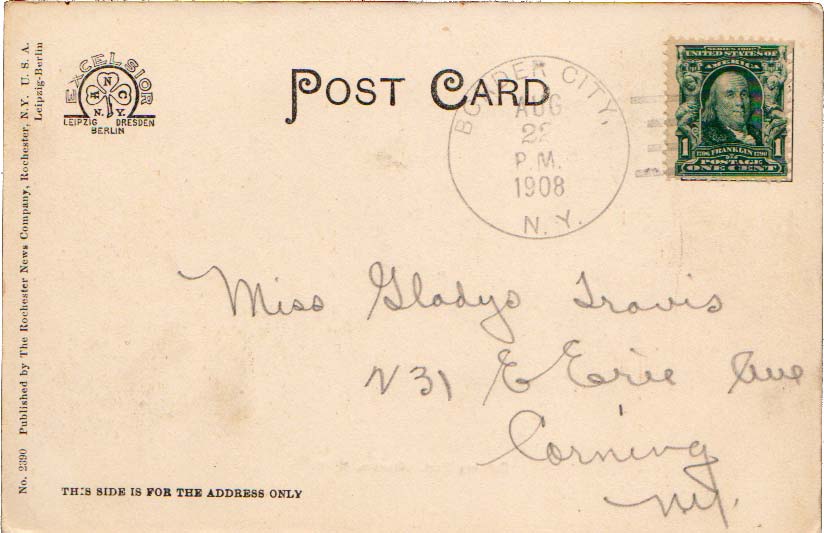 No. 2390 Published by The Rochester News Company, Rochester, N.Y. U. S. A.
Leipzig-Berlin
EXCELSIOR
R N C
N.Y.
LEIPZIG DRESDEN
BERLIN
POST CARD
BORDER CITY,
AUG
22
P.M.
1908
N.Y.
UNITED STATES OF
AMERICA
1 FRANKLIN 1
POSTAGE
ONE CENT
Miss Gladys Travis
231 E Erie Ave
Corning
N.Y.
THIS SIDE IS FOR THE ADDRESS ONLY